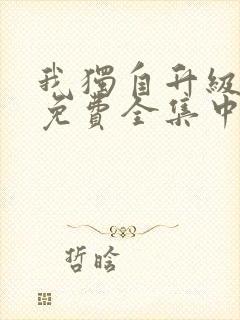 我獨自升級
免費全集中
哲晗